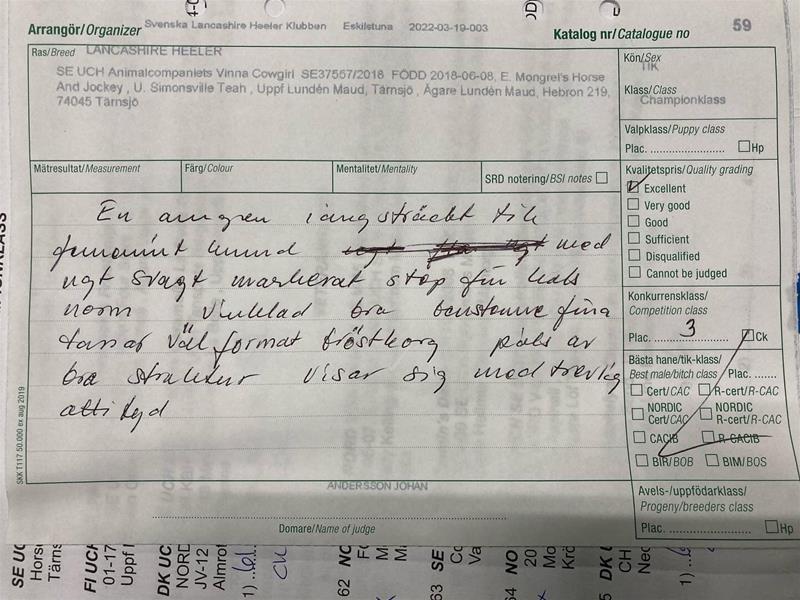 Arrangör/Organizer Svenska Lancashire Heeler Klubben Eskilstuna 2022-03-19-003 Katalog nr/Catalogue no 59
Ras/Breed LANCASHIRE HEELER
SE UCH Animalcompaniets Vinna Cowgirl SE37557/2018 FÖDD 2018-06-08, E. Mongrel's Horse
And Jockey , U. Simonsville Teah , Uppf Lundén Maud, Tärnsjö , Ägare Lundén Maud, Hebron 219,
74045 Tärnsjö
Kön/Sex
TIK
Klass/Class
Championklass
Valpklass/Puppy class
Plac. Hp
Mätresultat/Measurement Färg/Colour Mentalitet/Mentality SRD notering/BSI notes
Kvalitetspris/Quality grading
Excellent
Very good
Good
Sufficient
Disqualified
Cannot be judged
En långsträckt tik
feminint huvud med
ngt svagt markerat stop fin hals
norm vinklad bra benstomme fina
tassar väl format bröstkorg päls av
bra struktur visar sig med trevlig
attityd
Konkurrensklass/
Competition class
Plac. 3 Ck
Bästa hane/tik-klass/
Best male/bitch class Plac. ........
Cert/CAC R-cert/R-CAC
NORDIC NORDIC
Cert/CAC R-cert/R-CAC
CACIB R-CACIB
BIR/BOB BIM/BOS
Avels-/uppfödarklass/
Progeny/breeders class
Plac. Hp
ANDERSSON JOHAN
Domare/Name of judge
SKK T117 50.000 ex aug 2019
SE UC
Horse
Tärns
FI UCH
01-17
Uppf l
DK UC
NORD
JV-12
Almrof
1)
CK
62 NO
63 SE
64 NO
20
Mo
Krö
DK U
CH
Ned
1)